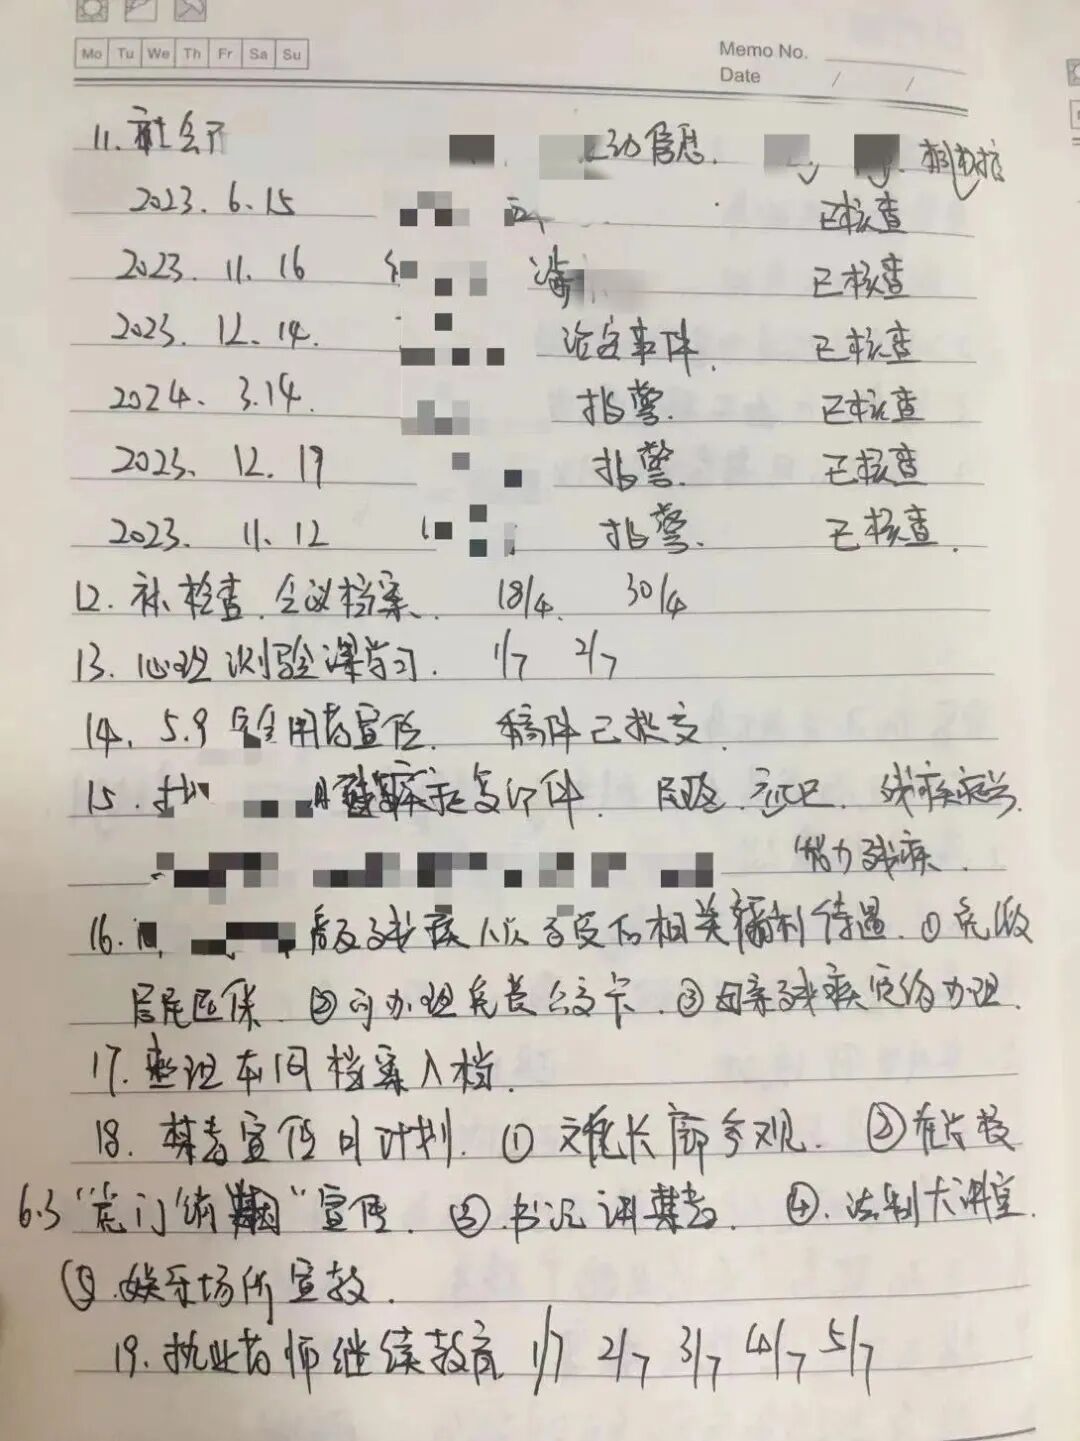 Mo Tu We Th Fr Sa Su
Memo No.
Date / /
11. 社会 动信息.
2023. 6. 15 已核查
2023. 11. 16 毒 已核查
2023. 12. 14. 治安事件. 已核查
2024. 3.14. 报警. 已核查
2023. 12. 19 报警. 已核查
2023. 11. 12 报警. 已核查.
12. 补检查. 会议档案. 18/4. 30/4
13. 心理测验课学习. 1/7 2/7
14. 5.9 安全用药宣传. 稿件已提交.
15. 残疾证复印件. 残疾
能力残疾.
16. 残疾人 享受的相关福利待遇. ① 免缴
居民医保. ② 可办理免费公交卡. ③ 母亲残疾 办理.
17. 整理本周档案入档.
18. 禁毒宣传月计划. ① 文化长廊参观. ②
6.3 "虎门销烟" 宣传. ③ 书记讲禁毒. ④. 法制大讲堂.
⑤. 娱乐场所宣教.
19. 执业药师继续教育 1/7 2/7 3/7 4/7 5/7